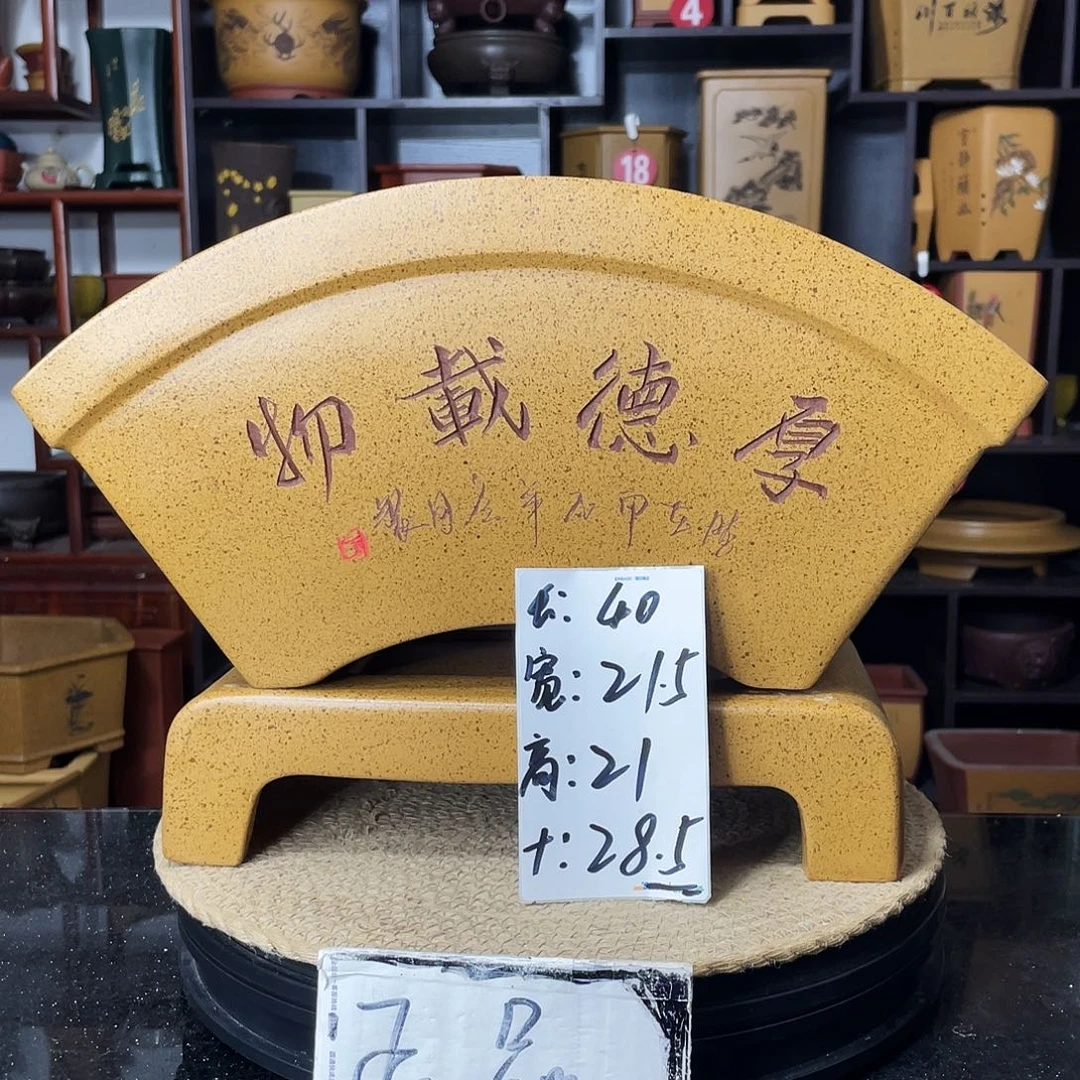 4
18
厚德載物
在甲辰年
长: 40
宽: 21.5
高: 21
十: 28.5